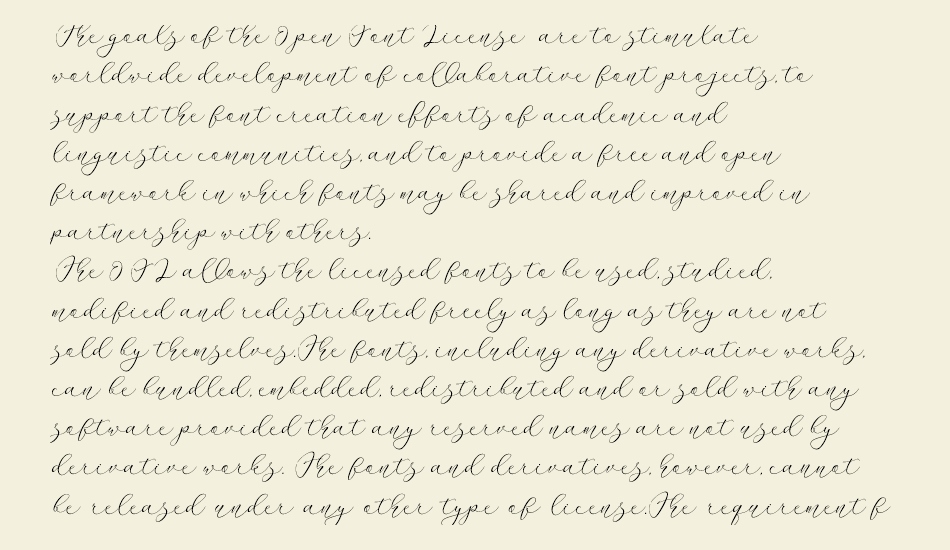 The goals of the Open Font License are to stimulate
worldwide development of collaborative font projects, to
support the font creation efforts of academic and
linguistic communities, and to provide a free and open
framework in which fonts may be shared and improved in
partnership with others.
The OFL allows the licensed fonts to be used, studied,
modified and redistributed freely as long as they are not
sold by themselves.The fonts, including any derivative works,
can be bundled, embedded, redistributed and or sold with any
software provided that any reserved names are not used by
derivative works. The fonts and derivatives, however, cannot
be released under any other type of license.The requirement f